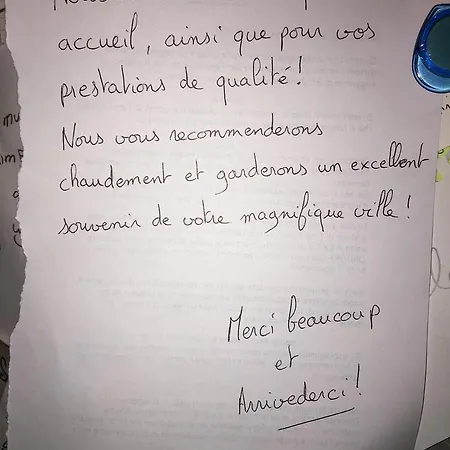 accueil, ainsi que pour vos
prestations de qualité!
Nous vous recommenderons
chaudement et garderons un excellent
souvenir de votre magnifique ville!
Merci beaucoup
et
Arrivederci!